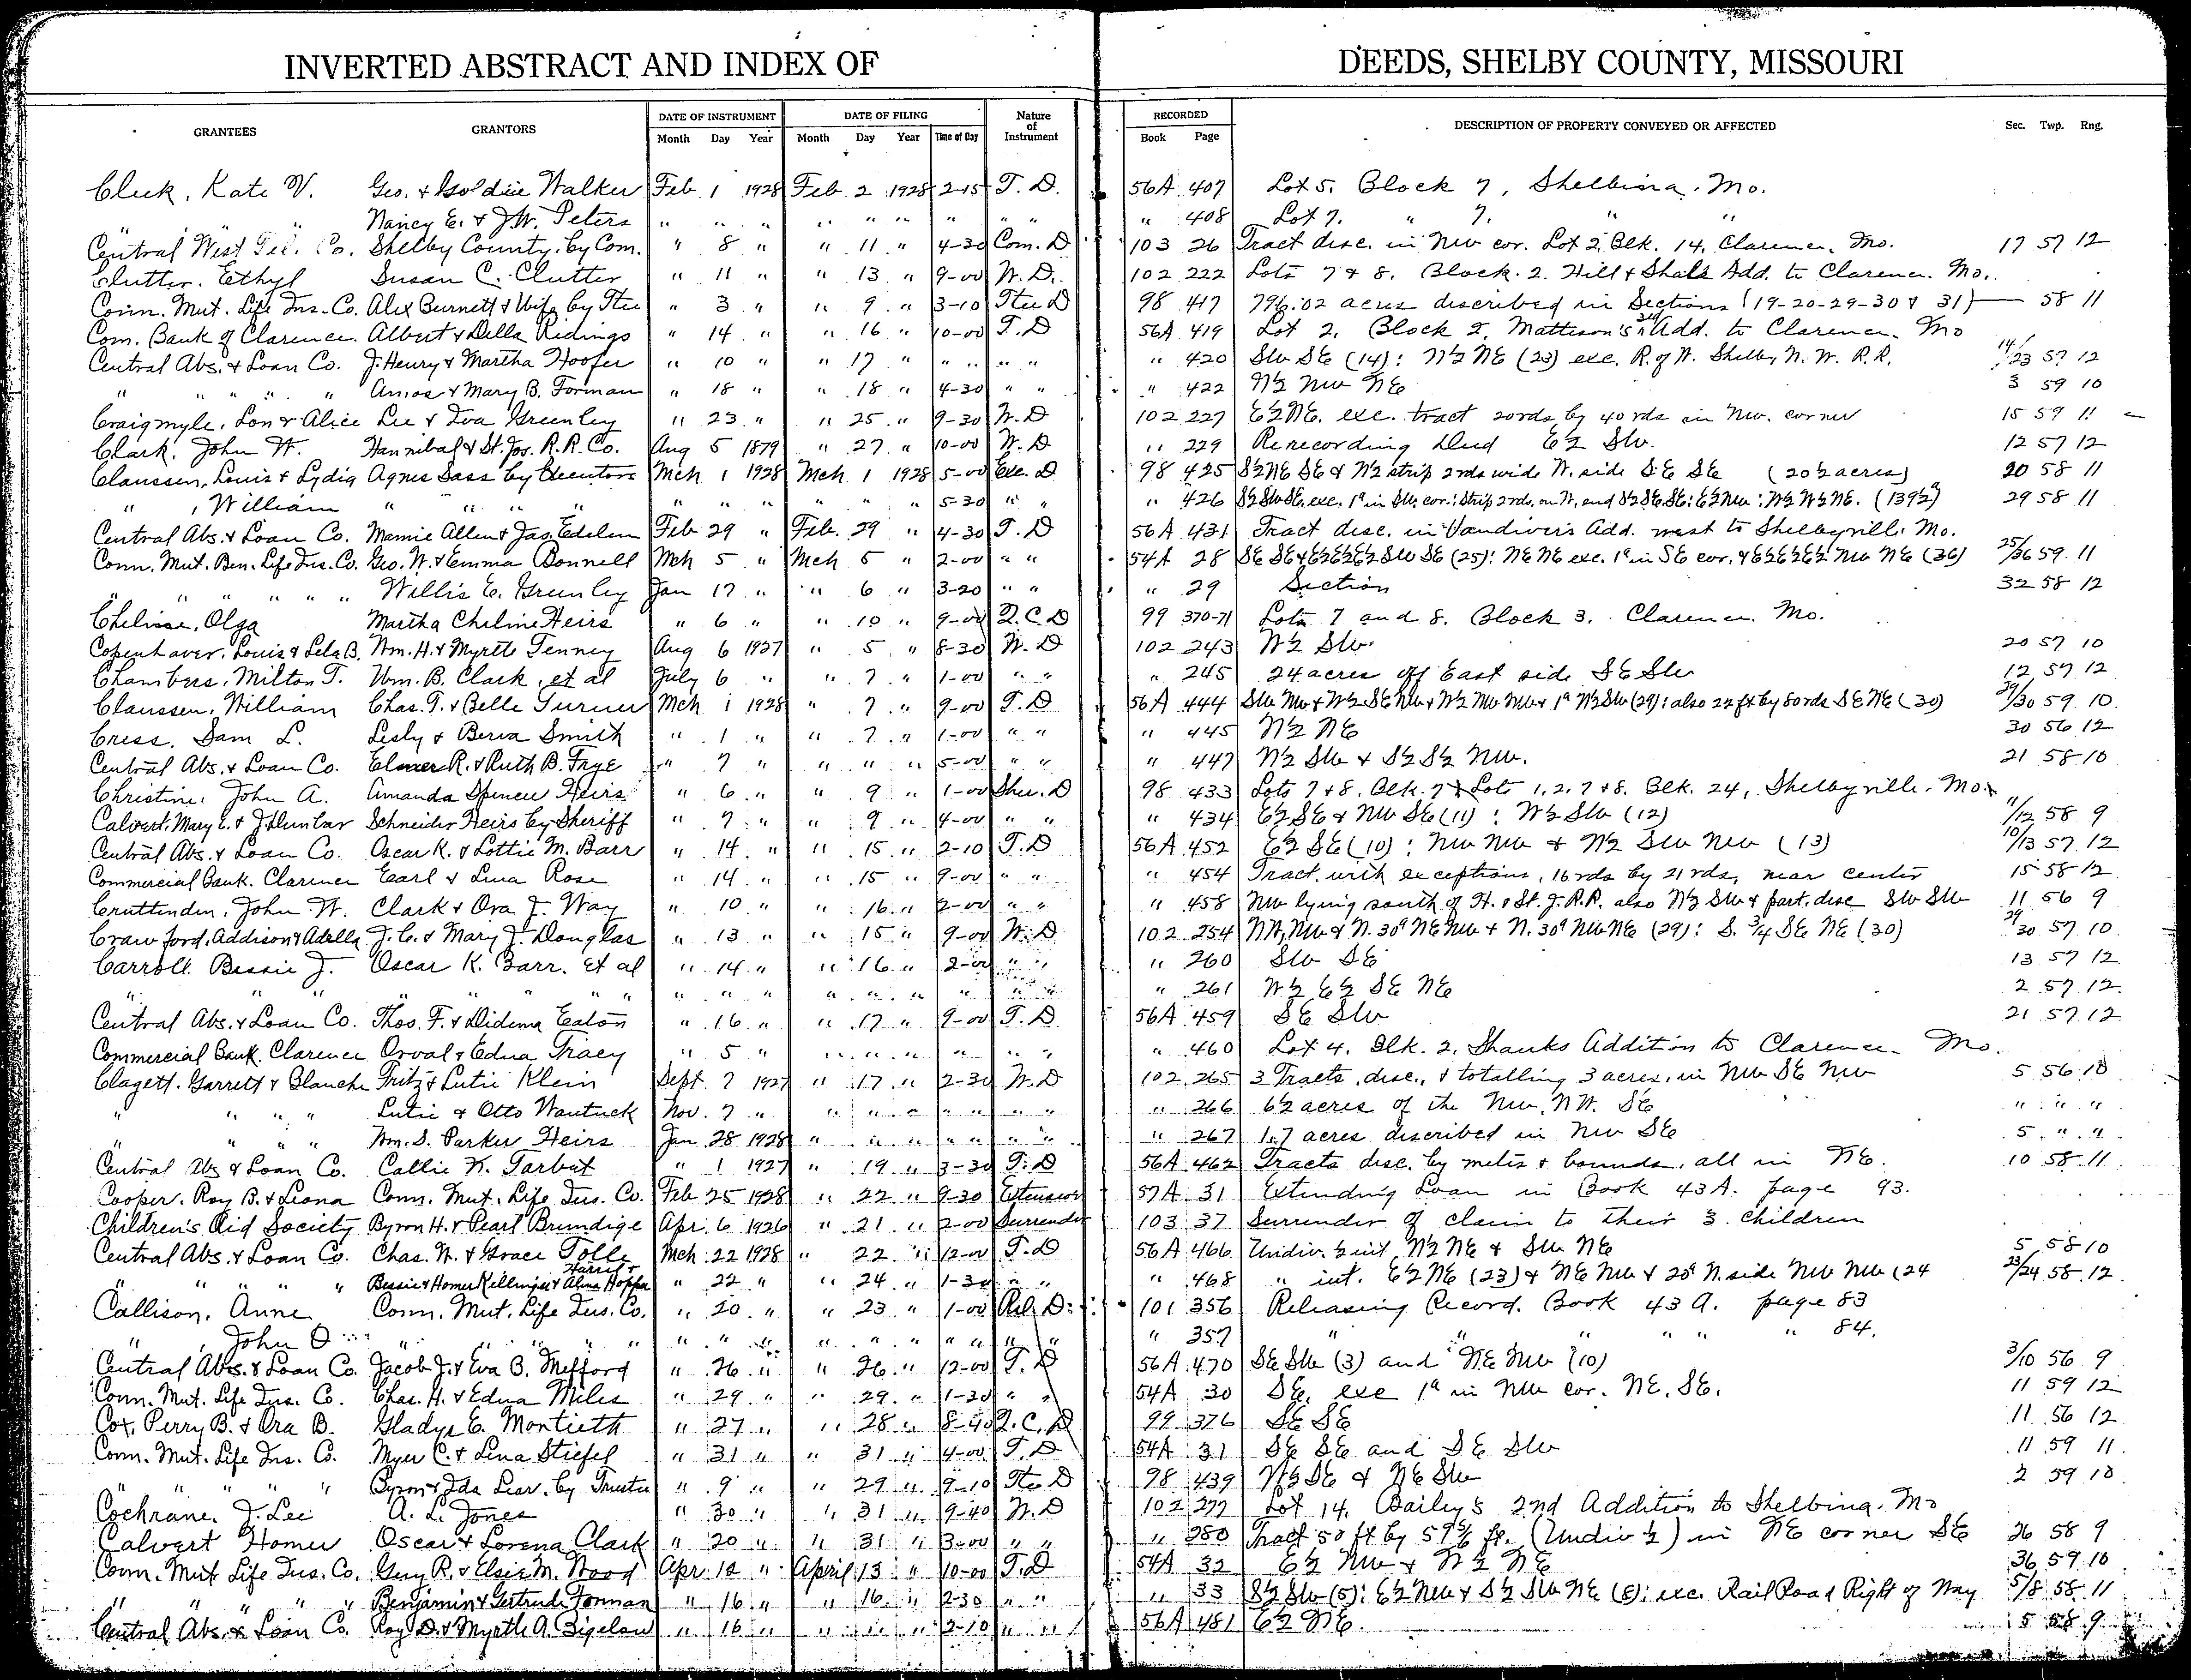 INVERTED ABSTRACT AND INDEX OF DEEDS, SHELBY COUNTY, MISSOURI
GRANTEES GRANTORS DATE OF INSTRUMENT DATE OF FILING Nature of Instrument RECORDED DESCRIPTION OF PROPERTY CONVEYED OR AFFECTED Sec. Twp. Rng.
Month Day Year Month Day Year Time of Day Book Page
Cleek, Kate V. Geo. & Goldie Walker Feb. 1 1928 Feb. 2 1928 2-15 T. D. 56A 407 Lot 5, Block 7, Shelbina, Mo.
" " Nancy E. & J.W. Peters " " " " " " " " " " 408 Lot 7, " 7, " "
Central West Tel. Co. Shelby County, by Com. " 8 " " 11 " 4-30 Com. D 103 26 Tract desc. in NW cor. Lot 2, Blk. 14, Clarence, Mo. 17 57 12
Clutter, Ethyl Susan C. Clutter " 11 " " 13 " 9-00 W. D. 102 222 Lots 7 & 8, Block 2, Hill & Shale Add. to Clarence, Mo.
Conn. Mut. Life Ins. Co. Alex Burnett & Wife by Ttee " 3 " " 9 " 3-10 Ttee D 98 417 796.02 acres described in Sections (19-20-29-30 & 31) 58 11
Com. Bank of Clarence. Albert & Della Ridings " 14 " " 16 " 10-00 T. D 56A 419 Lot 2, Block 2, Mattison's 3rd Add. to Clarence, Mo
Central Abs. & Loan Co. J. Henry & Martha Hoofer " 10 " " 17 " " " " " 420 SW SE (14): N½ NE (23) exc. R. of W. Shelby N. W. R.R. 14/23 57 12
" " " " Amos & Mary B. Forman " 18 " " 18 " 4-30 " " " 422 N½ NW NE 3 59 10
Craigmyle, Lon & Alice Lee & Iva Greenley " 23 " " 25 " 9-30 W. D 102 227 E½ NE. exc. tract 20rds by 40 rds in NW. corner 15 59 11
Clark, John W. Hannibal & St. Jos. R.R. Co. Aug 5 1879 " 27 " 10-00 W. D " 229 Rerecording Deed E½ SW. 12 57 12
Claussen, Louis & Lydia Agnes Sass by Executors Mch 1 1928 Mch. 1 1928 5-00 Exe. D 98 425 S½ NE SE & N½ strip 2rds wide W. side SE SE (20½ acres) 20 58 11
" , William " " " " " " " " " " 5-30 " " " 426 S½ SW SE, exc. 1ª in SW. cor.: Strip 2rds. on W. end S½ SE. SE: E½ NW: W½ W½ NE. (139½ª) 29 58 11
Central Abs. & Loan Co. Mamie Allen & Jas. Edelen Feb 29 " Feb. 29 " 4-30 T. D 56A 431 Tract desc. in Vandiver's Add. west to Shelbyville, Mo.
Conn. Mut. Ben. Life Ins. Co. Geo. W. & Emma Bonnell Mch 5 " Mch 5 " 2-00 " " 54A 28 SE SE & E½ E½ E½ SW SE (25): NE NE exc. 1ª in SE cor. & E½ E½ E½ NW NE (36) 25/36 59 11
" " " " " " Willis E. Greenley Jan 17 " " 6 " 3-20 " " " 29 Section 32 58 12
Olga Martha Cheline Heirs " 6 " " 10 " 9-00 Q. C. D 99 370-71 Lots 7 and 8, Block 3, Clarence, Mo.
Copenhaver, Louis & Lela B. Wm. H. & Myrtle Tenney Aug 6 1927 " 5 " 8-30 W. D 102 243 W½ SW. 20 57 10
Chambers, Milton T. Wm. B. Clark, et al July 6 " " 7 " 1-00 " " " 245 24 acres off East side SE SW 12 57 12
Claussen, William Chas. T. & Belle Turner Mch 1 1928 " 7 " 9-00 T. D 56A 444 SW NW & W½ SE NW & W½ NW NW & 1ª N½ SW (29): also 22 ft by 80rds SE NE (30) 29/30 59 10
Cress, Sam L. Lesly & Berva Smith " 1 " " 7 " 1-00 " " " 445 N½ NE 30 56 12
Central Abs. & Loan Co. Elmer R. & Ruth B. Frye " 7 " " " " 5-00 " " " 447 N½ SW & S½ S½ NW. 21 58 10
Christine, John A. Amanda Spencer Heirs " 6 " " 9 " 1-00 Sher. D 98 433 Lots 7 & 8, Blk. 7 & Lots 1, 2, 7 & 8, Blk. 24, Shelbyville, Mo.
Calvert, Mary E. & J. Dunbar Schneider Heirs by Sheriff " 7 " " 9 " 4-00 " " " 434 E½ SE & NW SE (11): W½ SW (12) 11/12 58 9
Central Abs. & Loan Co. Oscar K. & Lottie M. Barr " 14 " " 15 " 2-10 T. D 56A 452 E½ SE (10): NW NW & N½ SW NW (13) 10/13 57 12
Commercial Bank, Clarence Earl & Lena Rose " 14 " " 15 " 9-00 " " " 454 Tract, with exceptions, 16 rds by 21 rds, near center 15 58 12
Cruttenden, John W. Clark & Ora J. Way " 10 " " 16 " 2-00 " " " 458 NW lying south of H. & St. J. R.R. also N½ SW & part, desc SW SW 11 56 9
Crawford, Addison & Adella J. C. & Mary J. Douglas " 13 " " 15 " 9-00 W. D 102 254 NW, NW & N. 30ª NE NW & N. 30ª NW NE (29): S. ¾ SE NE (30) 29/30 57 10
Carroll, Bessie J. Oscar K. Barr, et al " 14 " " 16 " 2-00 " " " 260 SW SE 13 57 12
" " " " " " " " " " " " " " " " " " 261 W½ E½ SE NE 2 57 12
Central Abs. & Loan Co. Thos. F. & Didema Eaton " 16 " " 17 " 9-00 T. D 56A 459 SE SW 21 57 12
Commercial Bank, Clarence Orval & Edna Tracy " 5 " " " " " " " " 460 Lot 4, Blk. 2, Shanks Addition to Clarence, Mo.
Clagett, Garrett & Blanche Fritz & Lutie Klein Sept. 7 1927 " 17 " 2-30 W. D 102 265 3 Tracts, desc., & totalling 3 acres, in NW SE NW 5 56 10
" " " " Lutie & Otto Wautuck Nov. 7 " " " " " " " " " 266 6½ acres of the NW, NW. SE " " "
" " " " Wm. S. Parker Heirs Jan 28 1928 " " " " " " " " 267 1.7 acres discribed in NW SE 5 " "
Central Abs & Loan Co. Callie K. Tarbut " 1 1927 " 19 " 3-30 T. D 56A 462 Tracts desc. by metes & bounds, all in NE. 10 58 11
Cooper, Roy B. & Leona Conn. Mut. Life Ins. Co. Feb 25 1928 " 22 " 9-30 Extension 57A 31 Extending Loan in Book 43A. page 93.
Children's Aid Society Byron H. & Pearl Brundige Apr. 6 1926 " 21 " 2-00 Surrender 103 37 Surrender of claim to their 3 children
Central Abs. & Loan Co. Chas. W. & Grace Tolle Mch. 22 1928 " 22 " 12-00 T. D 56A 466 Undiv. ½ int. N½ NE & SW NE 5 58 10
" " " " " Bessie & Homer Kellinger & Harriet & Alma Hopper " 22 " " 24 " 1-30 " " " 468 " int. E½ NE (23) & NE NW & 20ª N. side NW NW (24 23/24 58 12
Callison, Anne Conn. Mut. Life Ins. Co. " 20 " " 23 " 1-00 Rel. D. 101 356 Releasing Record. Book 43 A. page 83
" , John O " " " " " " " " " " " " " " " 357 " " " " " " 84.
Central Abs. & Loan Co. Jacob J. & Eva B. Mefford " 26 " " 26 " 12-00 T. D 56A 470 SE SW (3) and NE NW (10) 3/10 56 9
Conn. Mut. Life Ins. Co. Chas. H. & Edna Miles " 29 " " 29 " 1-30 " " 54A 30 SE, exc 1ª in NW cor. NE. SE. 11 59 12
Cox, Perry B. & Ora B. Gladys E. Montieth " 27 " " 28 " 8-40 Q. C. D 99 376 SE SE 11 56 12
Conn. Mut. Life Ins. Co. Myer C. & Lena Stiefel " 31 " " 31 " 4-00 T. D 54A 31 SE SE and SE SW 11 59 11
" " " " Byron & Ida Lear, by Trustee " 9 " " 29 " 9-10 Tte D 98 439 W½ SE & NE SW 2 59 10
Cochrane, J. Lee A. L. Jones " 30 " " 31 " 9-40 W. D 102 277 Lot 14, Bailey's 2nd Addition to Shelbina, Mo
Calvert Homer Oscar & Lorena Clark " 20 " " 31 " 3-00 " " " 280 Tract 50 ft by 59⅚ ft. (Undiv ½) in NE corner SE 26 58 9
Conn. Mut Life Ins. Co. Guy R. & Elsie M. Wood Apr. 12 " April 13 " 10-00 T. D 54A 32 E½ NW & W½ NE 36 59 10
" " " " " Benjamin & Gertrude Forman " 16 " " 16 " 2-30 " " " 33 S½ SW (5): E½ NW & S½ SW NE (8): exc. Rail Road Right of Way 5/8 58 11
Central Abs. & Loan Co. Roy D. & Myrtle A. Bigelow " 16 " " " " 2-10 " " 56A 481 E½ NE. 5 58 9